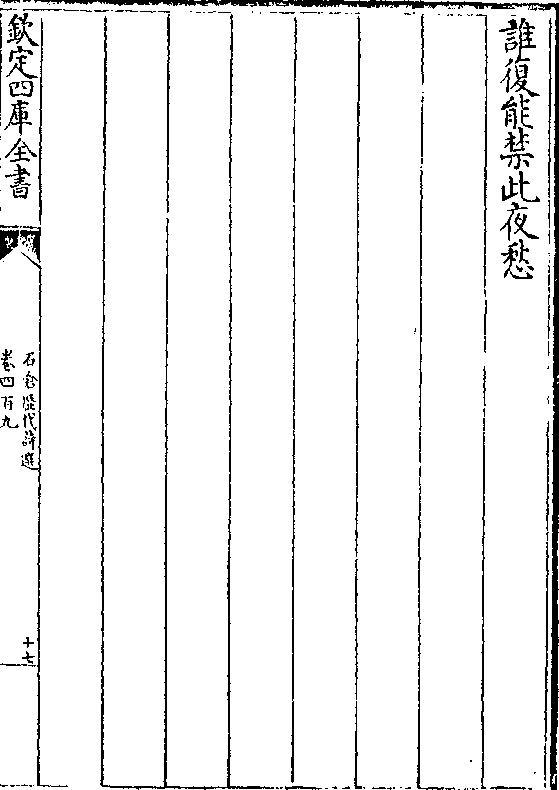 誰復能禁此夜愁
欽定四庫全書
石倉歷代詩選
卷四百九
十七